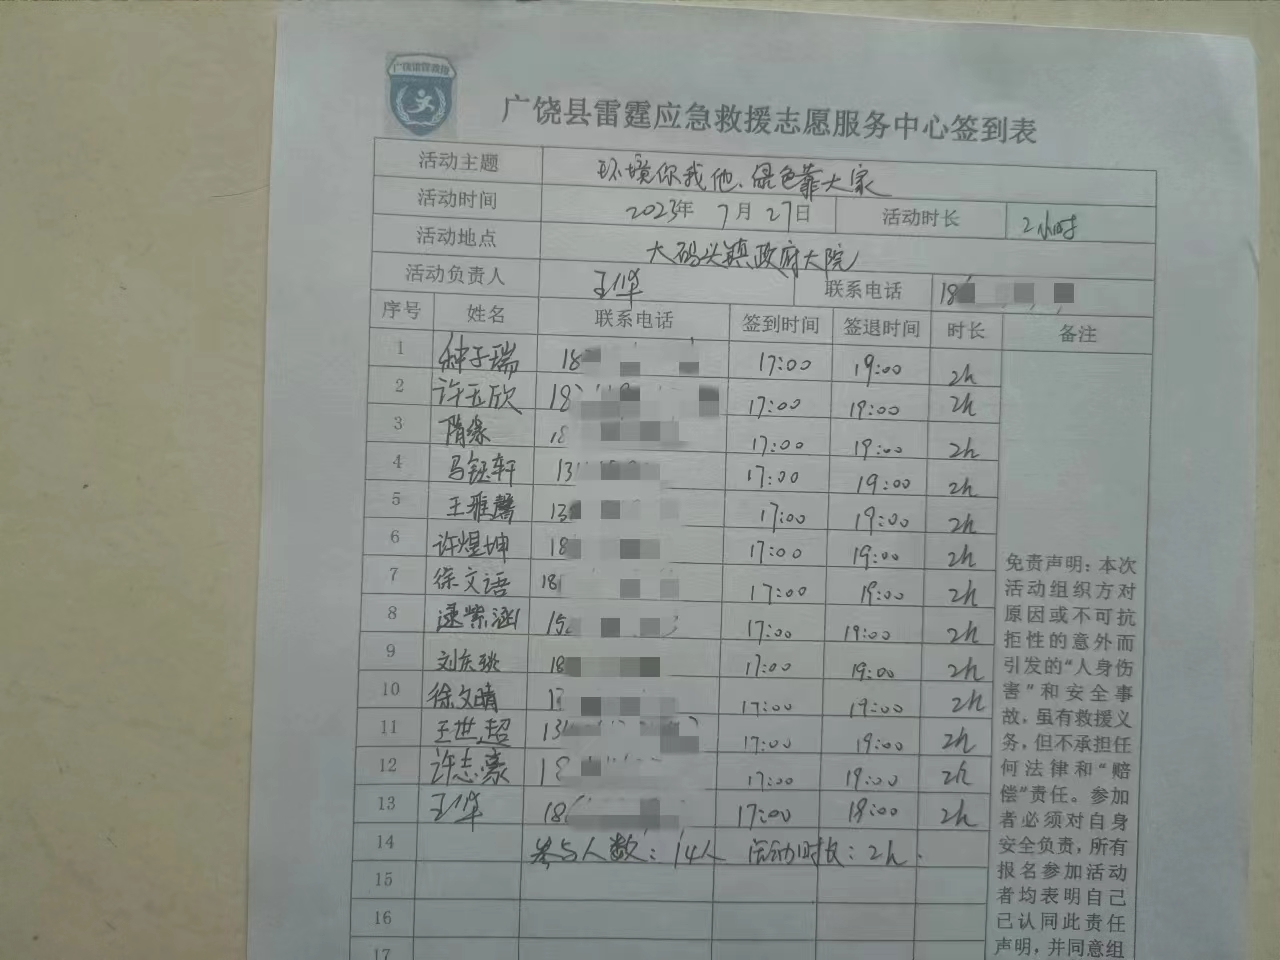 广饶雷霆救援
广饶县雷霆应急救援志愿服务中心签到表
活动主题 环境你我他、绿色靠大家
活动时间 2023年 7月 27日 活动时长 2小时
活动地点 大码头镇政府大院
活动负责人 王华 联系电话 18
序号 姓名 联系电话 签到时间 签退时间 时长 备注
1 种子瑞 18 17:00 19:00 2h
2 许玉欣 18 17:00 19:00 2h
3 隋缘 18 17:00 19:00 2h
4 马钰轩 13 17:00 19:00 2h
5 王雅馨 13 17:00 19:00 2h
6 许煜坤 18 17:00 19:00 2h
7 徐文语 18 17:00 19:00 2h
8 逯紫涵 15 17:00 19:00 2h
9 刘庆 18 17:00 19:00 2h
10 徐文晴 1 17:00 19:00 2h
11 王世超 13 17:00 19:00 2h
12 许志豪 18 17:00 19:00 2h
13 王华 18 17:00 19:00 2h
14 参与人数：14人 活动时长：2h.
15
16
17
免责声明：本次
活动组织方对
原因或不可抗
拒性的意外而
引发的“人身伤
害”和安全事
故，虽有救援义
务，但不承担任
何法律和“赔
偿”责任。参加
者必须对自身
安全负责，所有
报名参加活动
者均表明自己
已认同此责任
声明，并同意组